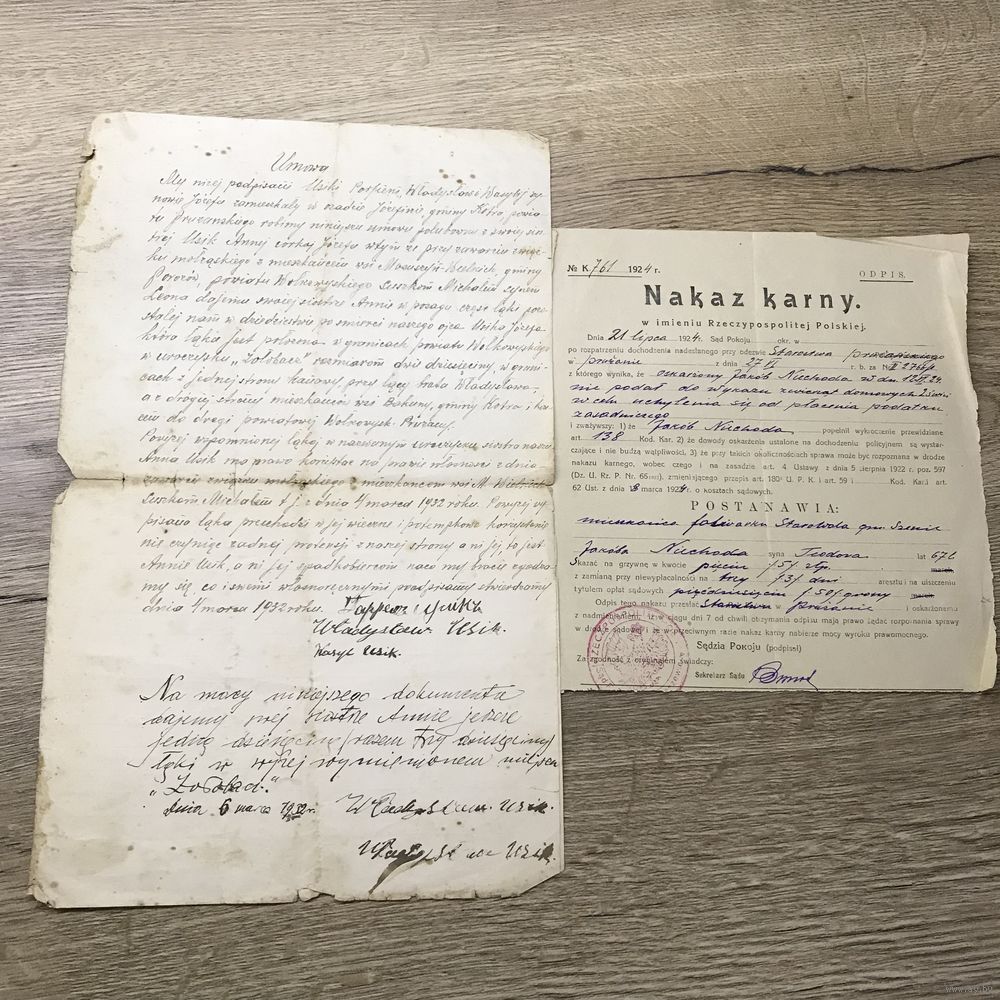 Umowa
My niżej podpisani Usiki Porfieni, Władysław i Wasyl sy-
nowie Józefa zamieszkały w Józefinie gminy Kotra powia-
tu Prużanskiego robimy niniejszą umowę polubowną z swoją sio-
strą Usik Anną córką Józefa w tym że przy zawarciu związ-
ku małżąskiego z mieszkańcem wsi gminy
Porozów, powiatu Wołkowyskiego Suszkom Michałem synem
Leona dajemy swojej siostrze Annie w posagu część łąki pozo-
stałej nam w dziedzictwie po śmierci naszego ojca Usika Józefa
która łąka jest położona w granicach powiatu Wołkowyskiego
w uroczysku rozmiarem dwie dziesięciny, w grani-
cach z jednej strony brata Władysława
a z drugiej strony mieszkańców wsi Bakuny, gminy Kotra i
do drogi powiatowej Wołkowysk-Prużany.
Powyżej wspomnioną łąką w nazwanym uroczysku siostra nasza
Anna Usik ma prawo korzystać na prawie własności z dnia
zawarcia związku z mieszkańcem wsi
Suszkom Michałem t. j. z dnia 4 marca 1932 roku. Powyżej wy-
pisana łąka przechodzi w jej wieczne i potomne korzystanie
nie czyniąc żadnej pretensji z naszej strony a ni jej, to jest
Annie Usik, a ni jej spadkobiercom na co my bracia zgadza-
my się, co i swemi własnoręcznymi podpisami stwierdzamy
dnia 4 marca 1932 roku.
Władysław Usik.
Wasyl Usik.
Na mocy niniejszego dokumenta
dajemy swej siostre Annie jeszcze
jedną dziesięcinę (razem try dziesięciny)
łąki w wyżej wymienionem miejscu
dnia 6 marca 1932 r. Władysław Usik.
Usik.
№ K. 761 1924 r.
ODPIS.
Nakaz karny.
w imieniu Rzeczypospolitej Polskiej.
Dnia 21 lipca 1924. Sąd Pokoju okr. w
po rozpatrzeniu dochodzenia nadesłanego przy odezwie Starostwa prużańskiego
w Prużanie z dnia 27 VI r. b. za №
z którego wynika, że oskarżony Jakób Niechoda w dn.
nie podał do wykazu zwierząt domowych
w celu uchylenia się od płacenia podatku
zasadniczego
i zważywszy: 1) że Jakób Niechoda popełnił wykroczenie przewidziane
art. 138 Kod. Kar. 2) że dowody oskarżenia ustalone na dochodzeniu policyjnem są wystar-
czające i nie budzą wątpliwości, 3) że przy takich okolicznościach sprawa może być rozpoznana w drodze
nakazu karnego, wobec czego i na zasadzie art. 4 Ustawy z dnia 5 sierpnia 1922 r. poz. 597
(Dz. U. Rz. P. Nr. 66 zmieniającego przepis art. 180¹ U. P. K. i art. 59 i Kod. Kar. i art.
62 Ust. z dnia marca 1924 r. o kosztach sądowych.
POSTANAWIA:
mieszkańca folwarku Starowola gm. Szenie
Jakóba Niechoda syna Teodora lat 67
Skazać na grzywnę w kwocie pięciu /5/ złp.
z zamianą przy niewypłacalności na trzy /3/ dni aresztu i na uiszczeniu
tytułem opłat sądowych pięćdziesięciu /50/ groszy
Odpis tego nakazu przesłać Starostwu w Prużanie i oskarżonemu
z nadmienieniem, iż w ciągu dni 7 od chwili otrzymania odpisu mają prawo żądać rozpoznania sprawy
w drodze sądowej i że w przeciwnym razie nakaz karny nabierze mocy wyroku prawomocnego.
Sędzia Pokoju (podpisał)
Za zgodność z oryginałem świadczy:
Sekretarz Sądu